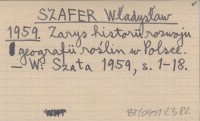 SZAFER Władysław
1959. Zarys historii rozwoju
geografii roślin w Polsce.
— W. Szata 1959, s. 1-18.